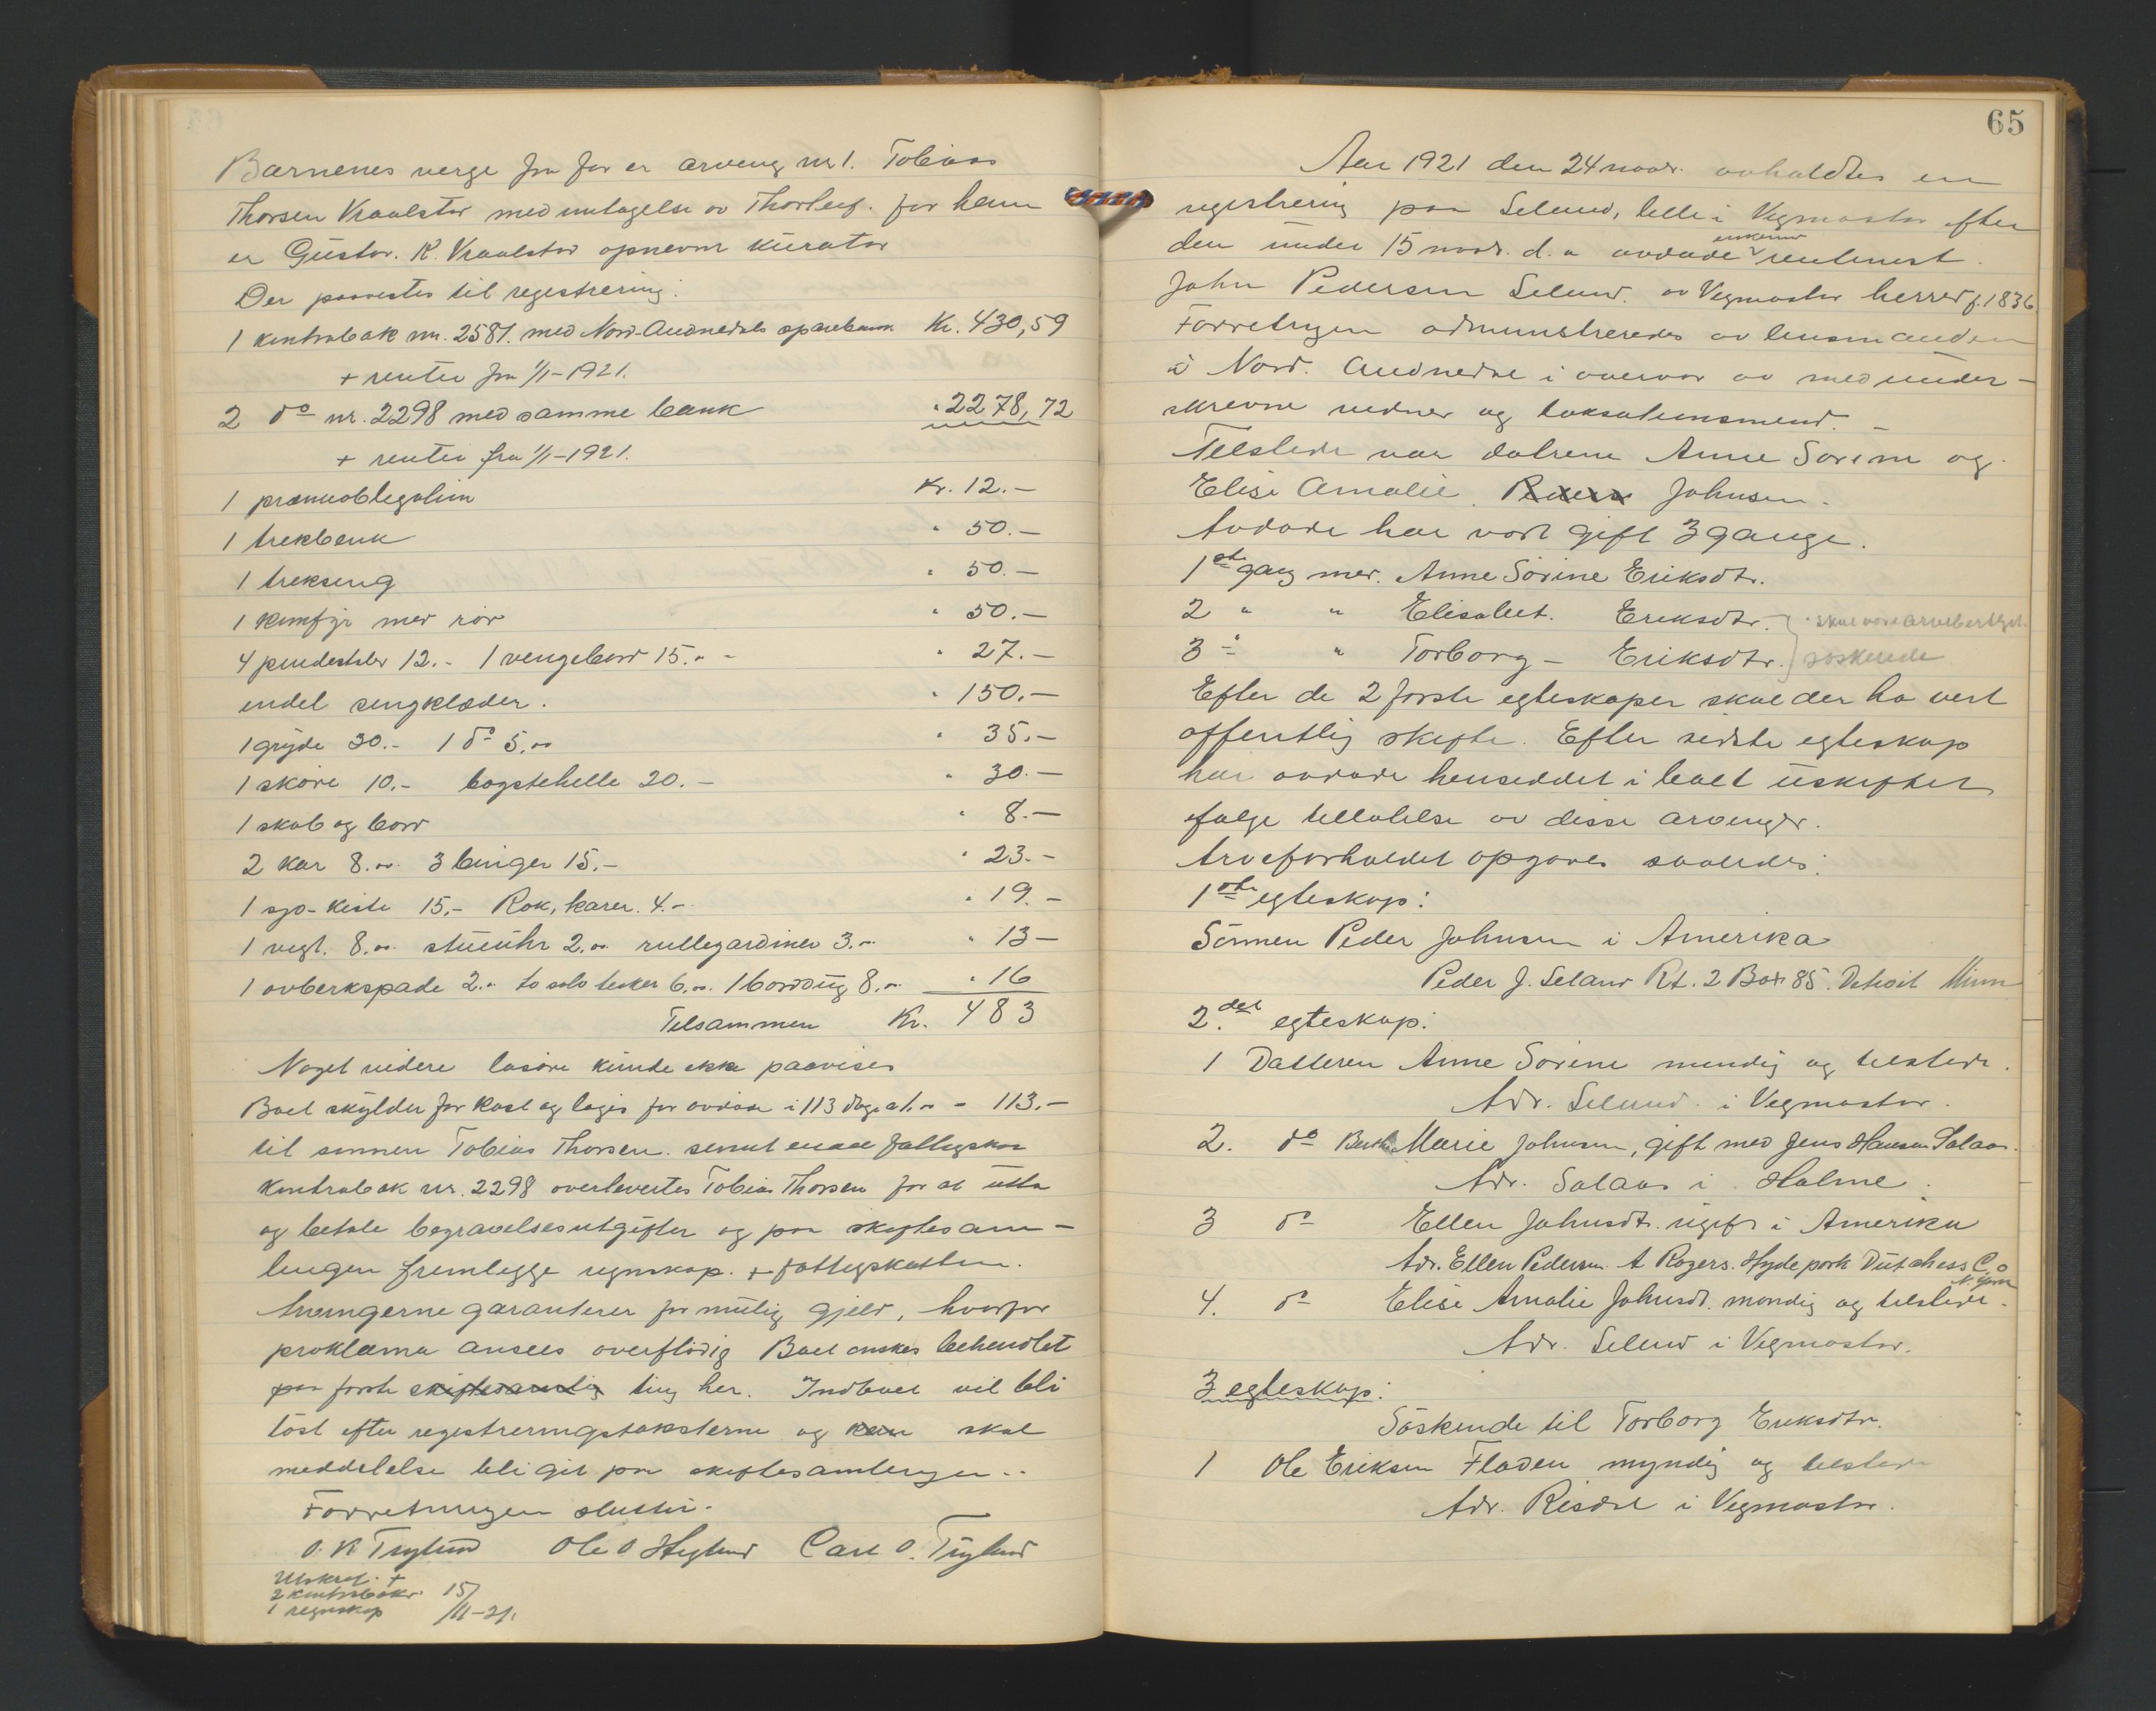 Barnenes verge fra før er arving nr 1. Tobias
Thorsen Vraalstad med undtagelse av Thorleif. for ham
er Gustav. K. Vraalstad opnevnt kurator
Der paavistes til registrering:
1 kontrabok nr. 2581. med Nord-Audnedals sparebank Kr. 430,59
+ renter fra 1/1-1921.
2 do nr. 2298 med samme bank " 2278,72
+ renter fra 1/1-1921.
1 præmieobligation Kr. 12.-
1 trekbenk " 50.-
1 trekseng " 50.-
1 komfyr med rør " 50.-
4 pindestoler 12.- 1 vengebord 15.- " 27.-
endel sengklæder. " 150.-
1 gryde 30.- 1 do 5.oo " 35.-
1 skore 10.- bagstehelle 20.- " 30.-
1 skab og bord " 8.-
2 kar 8.oo 3 binger 15.- " 23.-
1 sjø-kiste 15,- Rok, karer. 4.- " 19.-
1 vegt. 8.oo. stueuhr 2.oo rullegardiner 3.oo " 13-
1 avberkspade 2.- to sølvteskeer 6.oo. 1 borddug 8.oo " 16
Tilsammen Kr. 483
Noget videre løsøre kunde ikke paavises
Boet skylder for kost og logis for avdøde i 113 dage a 1.oo - 113.-
til sønnen Tobias Thorsen. samt endel fattigskat
Kontrabok nr. 2298 overleveres Tobias Thorsen for at utta
og betale begravelsesutgifter og paa skiftesam-
lingen fremlegge regnskap. + fattigskatten.
Arvingerne garanterer for mulig gjeld, hvorfor
proklama ansees overflødig Boet ønskes behandlet
paa første skiftesamling ting her. Indboet vil bli
løst efter registreringstaksterne og kan skal
meddelelse bli git paa skiftesamlingen..
Forretningen sluttet.
O. K Trygland Ole O Høyland Carl O. Trygland
Utskrif. +
2 kontrabøker 15/
1 regnskap /11-21.
65
Aar 1921 den 24 novbr. avholdtes en
registrering paa Selund, lille i Vegmostad efter
den under 15 novbr. d. a avdøde enkemand rentenist.
John Pedersen Selund. av Vegmostad herred f. 1836
Forretningen administreredes av lensmanden
i Nord. Audnedal i overvær av medunder-
skrevne vidner og taksationsmend. -
Tilstede var døtrene Anne Sorine og
Elise Amalie. Peders Johnsen.
Avdøde har vært gift 3 gange.
1ste gang med. Anne Sorine Eriksdtr.
2 " " Elisabet. Eriksdtr. } skal være arveberettiget.
3 " " Torborg - Eriksdtr. } søskende
Efter de 2 første egteskaper skal der ha vert
offentlig skifte. Efter sidste egteskap
har avdøde henseddet i boet uskiftet
ifølge tillatelse av disse arvinger.
Arveforholdet opgaves saaledes:
1ste egteskap:
Sønnen Peder Johnsen i Amerika
Peder J. Seland Rt. 2 Box 85. Detroit Minn
2.det egteskap:
1 Datteren Anne Sorine myndig og tilstede.
Adr. Selund i Vegmostad.
2. do Berthe Marie Johnsen, gift med Jens Hansen Salaas.
Adr. Salaas i Holme.
3 do Ellen Johnsdtr. ugift i Amerika
Adr. Ellen Pedersen A Rogers. Hyde park Dutchess C.o
N. York
4. do Elise Amalie Johnsdt. myndig og tilstede.
Adr. Selund i Vegmostad.
3 egteskap:
Søskende til Torborg Eriksdtr.
1 Ole Eriksen Fladen myndig og tilstede
Adr. Risdal i Vegmostad.